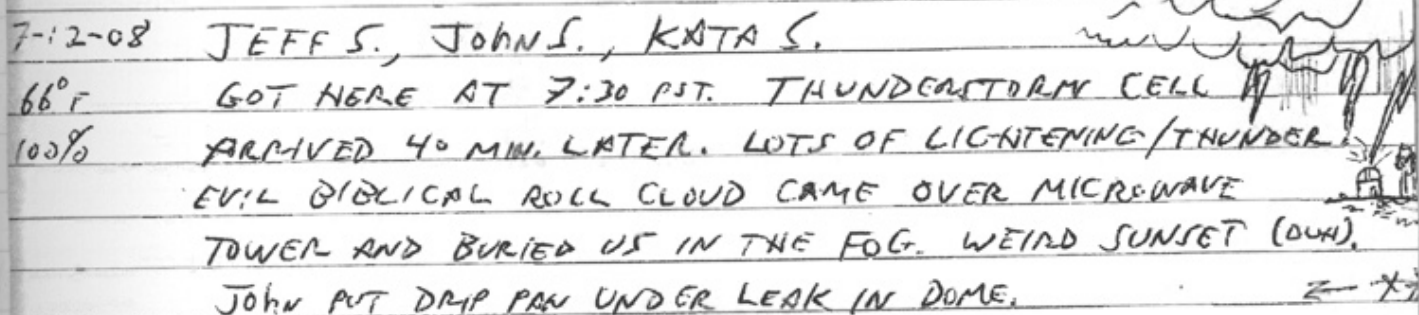 7-12-08 JEFF S., JOHN S., KATA S.
66°F GOT HERE AT 7:30 PST. THUNDERSTORM CELL
100% ARRIVED 40 MIN. LATER. LOTS OF LIGHTENING/THUNDER.
EVIL BIBLICAL ROLL CLOUD CAME OVER MICROWAVE
TOWER AND BURIED US IN THE FOG. WEIRD SUNSET (DUH).
JOHN PUT DRIP PAN UNDER LEAK IN DOME.